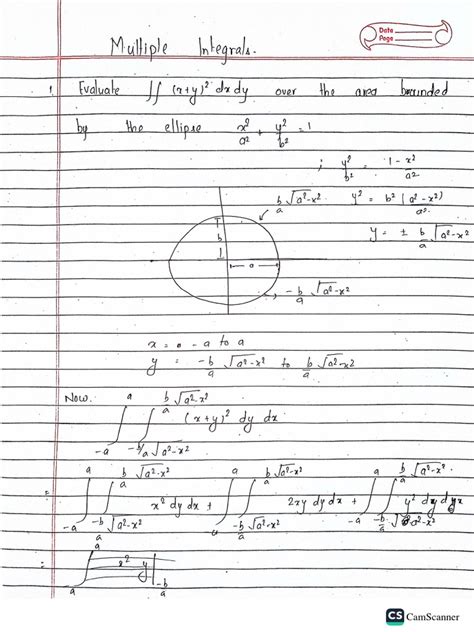 Date
Page
Multiple Integrals.
1. Evaluate ∬ (x+y)² dx dy over the area bounded
by the ellipse x²/a² + y²/b² = 1
; y²/b² = 1 - x²/a²
b/a √a²-x² y² = b² (a²-x²)/a²
y = ± b/a √a²-x²
b
a
, -b/a √a²-x²
x = - a to a
y = -b/a √a²-x² to b/a √a²-x²
Now. ∫_{-a}^{a} ∫_{-b/a √a²-x²}^{b/a √a²-x²} (x+y)² dy dx.
= ∫_{-a}^{a} ∫_{-b/a √a²-x²}^{b/a √a²-x²} x² dy dx + ∫_{-a}^{a} ∫_{-b/a √a²-x²}^{b/a √a²-x²} 2xy dy dx + ∫_{-a}^{a} ∫_{-b/a √a²-x²}^{b/a √a²-x²} y² dy dx
= ∫_{-a}^{a} x² y -b/a
CS CamScanner